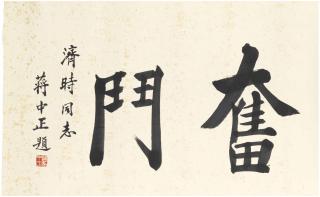 奮鬥
濟時同志
蔣中正題